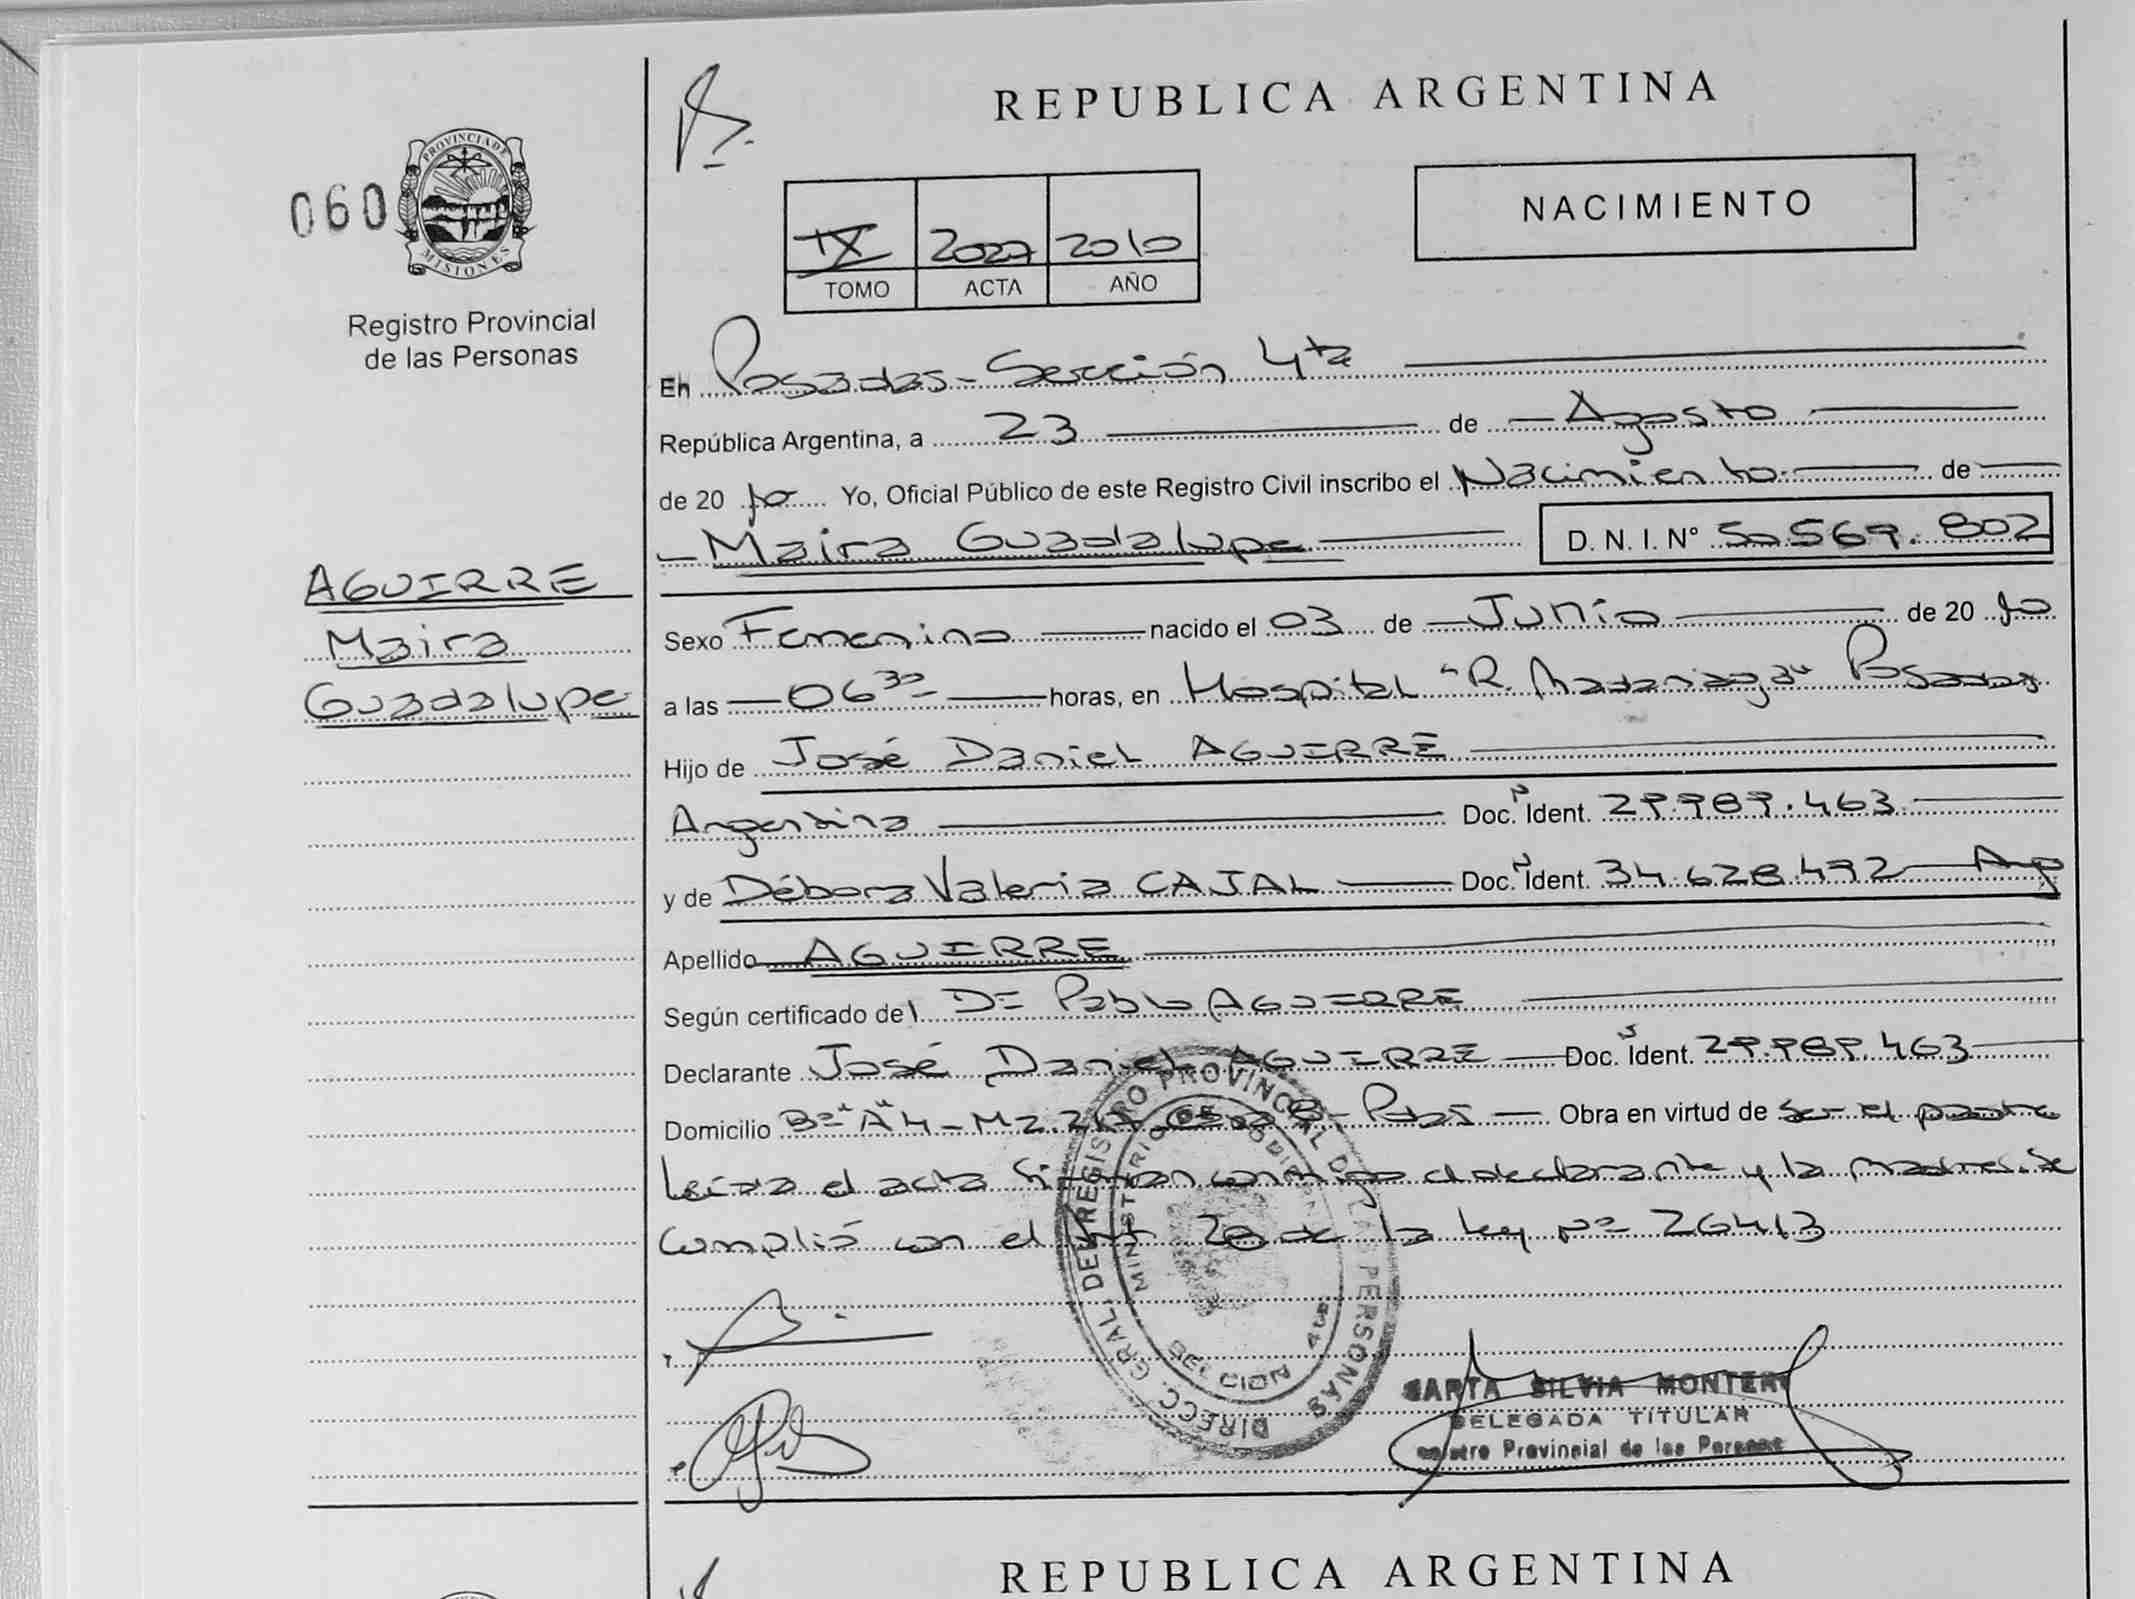 REPUBLICA ARGENTINA
060
PROVINCIA DE
MISIONES
Registro Provincial
de las Personas
IX 2027 2010
TOMO ACTA AÑO
NACIMIENTO
En Posadas - Sección 4ta
República Argentina, a 23 de Agosto
de 20 10 Yo, Oficial Público de este Registro Civil inscribo el Nacimiento de
Maira Guadalupe D. N. I. N° 50.567.802
AGUIRRE
Maira
Guadalupe
Sexo Femenino nacido el 03 de Junio de 20 10
a las 06 30 horas, en Hospital "R. Madariaga" Posadas
Hijo de José Daniel AGUIRRE
Argentina Doc. Ident. 29.989.463
y de Débora Valeria CAJAL Doc. Ident. 34.628.492 Arg
Apellido AGUIRRE
Según certificado del Dr Pablo AGUIRRE
Declarante José Daniel AGUIRRE Doc. Ident. 29.989.463
Domicilio Bº "A" 4 - Mz. - Pdas Obra en virtud de ser el padre
Leída el acta firman conmigo el declarante y la madre. Se
cumplió con el Art 28 de la Ley nº 26413
DIRECC. GRAL. DEL REGISTRO PROVINCIAL DE LAS PERSONAS
MINISTERIO DE GOBIERNO
SECCION 4ta
SARTA SILVIA MONTERO
DELEGADA TITULAR
Provincial de las Personas
REPUBLICA ARGENTINA